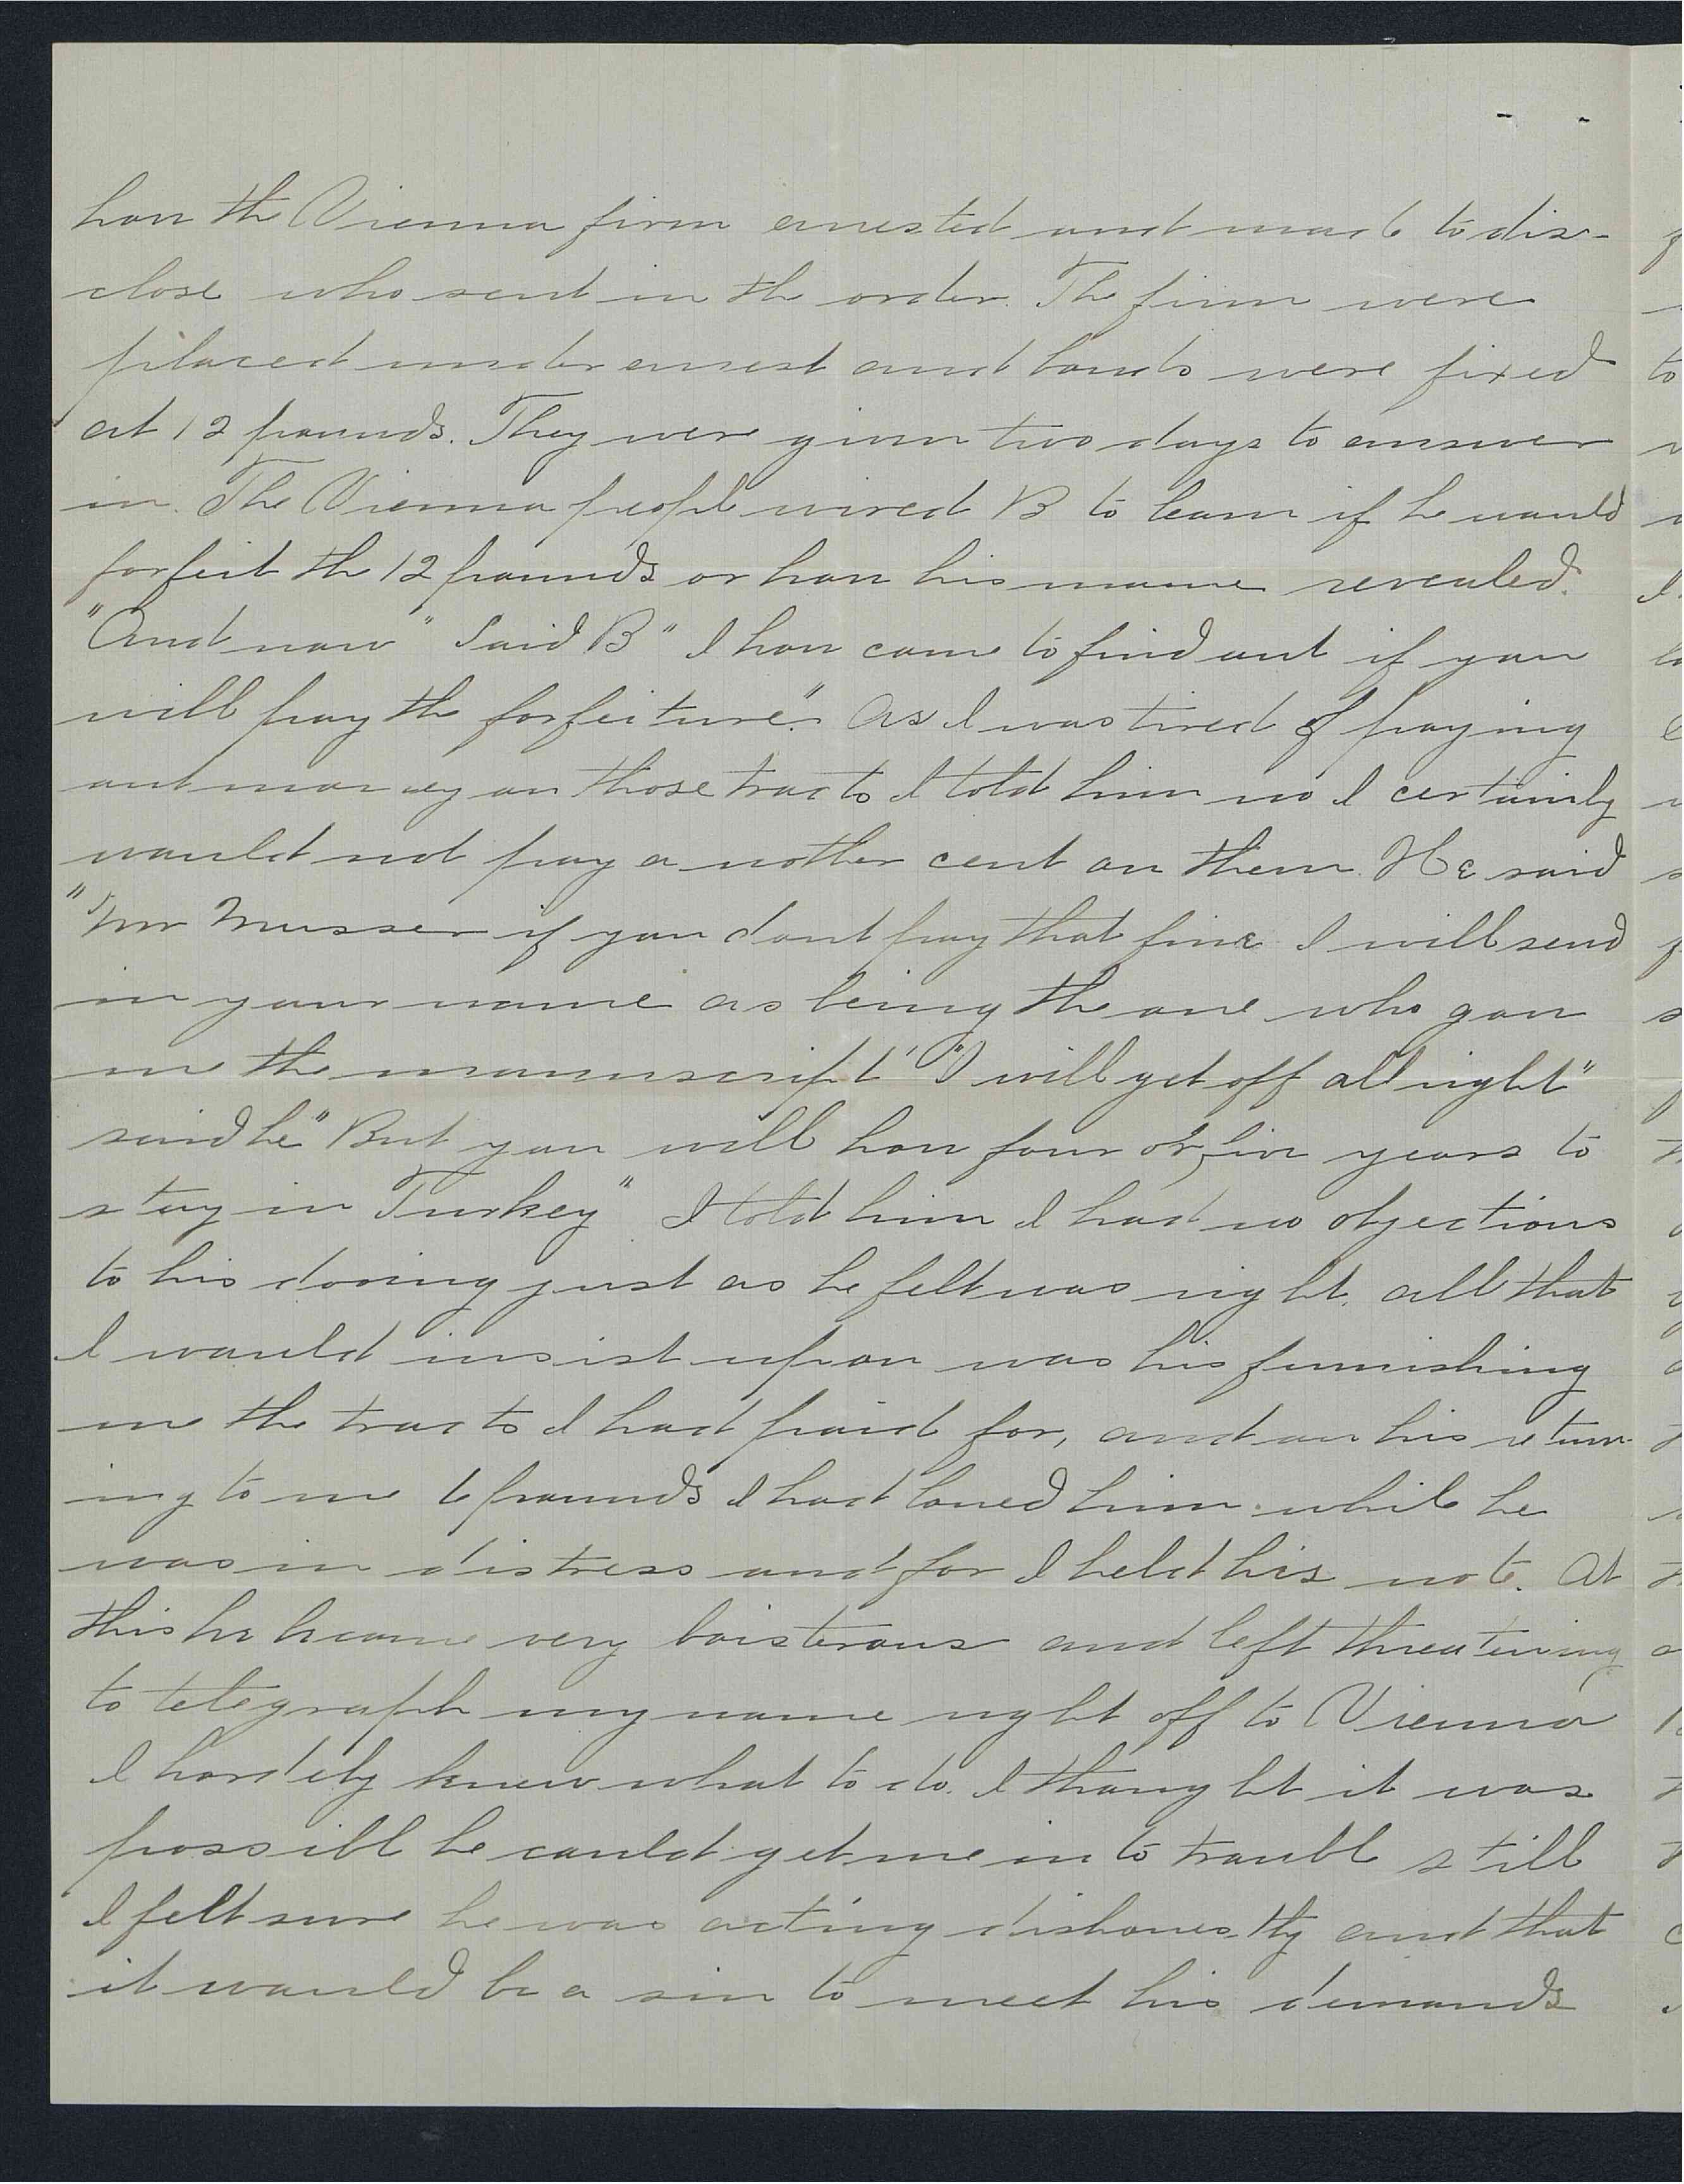 have the Vienna firm arrested and made to dis-
close who sent in the order. The firm were
placed under arrest and bonds were fixed
at 12 pounds. They were given two days to answer
in. The Vienna people wired B to learn if he would
forfeit the 12 pounds or have his name revealed.
"And now" Said B "I have come to find out if you
will pay the forfeiture". As I was tired of paying
out money on those tracts I told him no I certainly
would not pay a nother cent on them. He said
"Mr Musser if you dont pay that fine I will send
in your name as being the one who gave
me the manuscript" "I will get off all right"
said he "But you will have four or five years to
stay in Turkey" I told him I had no objections
to his dooing just as he felt was right, all that
I would insist upon was his furnishing
me the tracts I had paid for, and on his return-
ing to me 6 pounds I had loned him while he
was in distress and for I held his note. At
this he became very boisterous and left threatening
to telegraph my name right off to Vienna
I hardely knew what to do. I thought it was
possible he could get me in to trouble still
I felt sure he was acting dishonestly and that
it would be a sin to meet his demands